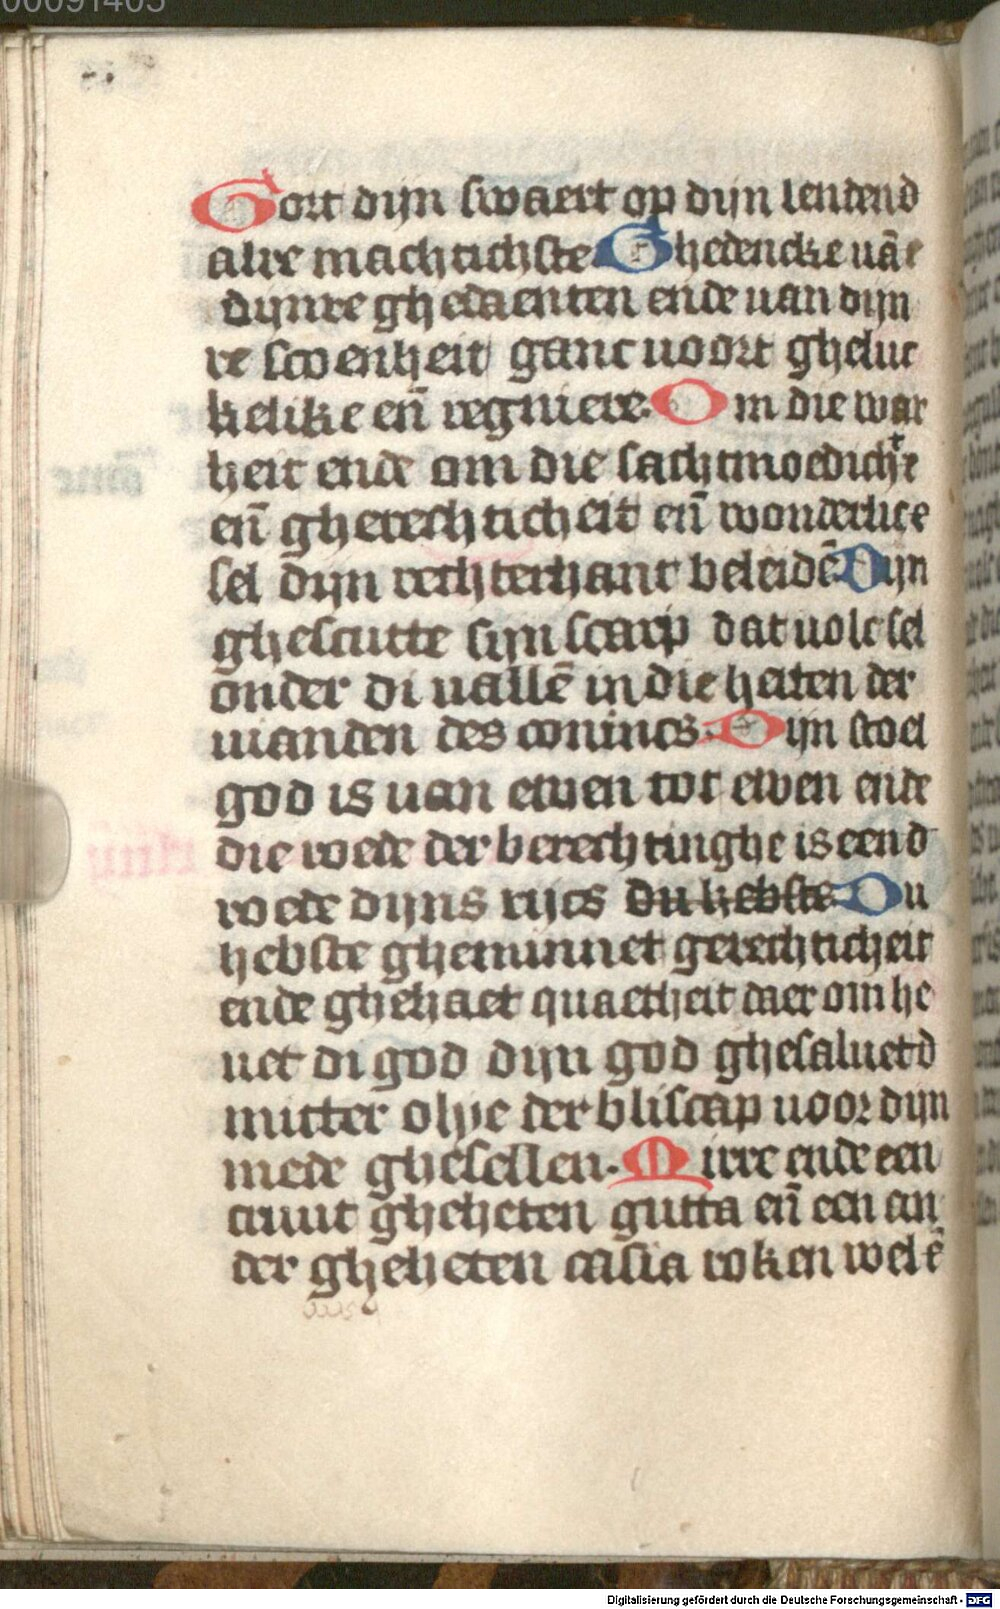 00091405
Gort dijn swaert op dijn lendend
alre machtichste Ghedencke uā
dijnre ghedaenten ende uan dijn
re scoenheit ganc uoort gheluc
kelike en̄ regniere. Om die war
heit ende om die sachtmoedich̄t
en̄ gherechticheit en̄ wonderlice
sel dijn rechterhant beleidē Dijn
ghescutte sijn scarp dat uolc sel
onder di uallē in die herten der
uianden des conincs. Dijn stoel
god is uan ewen tot ewen ende
die roede der berechtinghe is een d
roede dijns rijcs du hebste Du
hebste gheminnet gerechticheit
ende ghehaet quaetheit daer om he
uet di god dijn god ghesaluet d
mitter olye der bliscap uoor dijn
mede ghesellen. Mirre ende een
cruut gheheten gutta en̄ een an
der gheheten casia roken wel ē
Digitalisierung gefördert durch die Deutsche Forschungsgemeinschaft - DFG